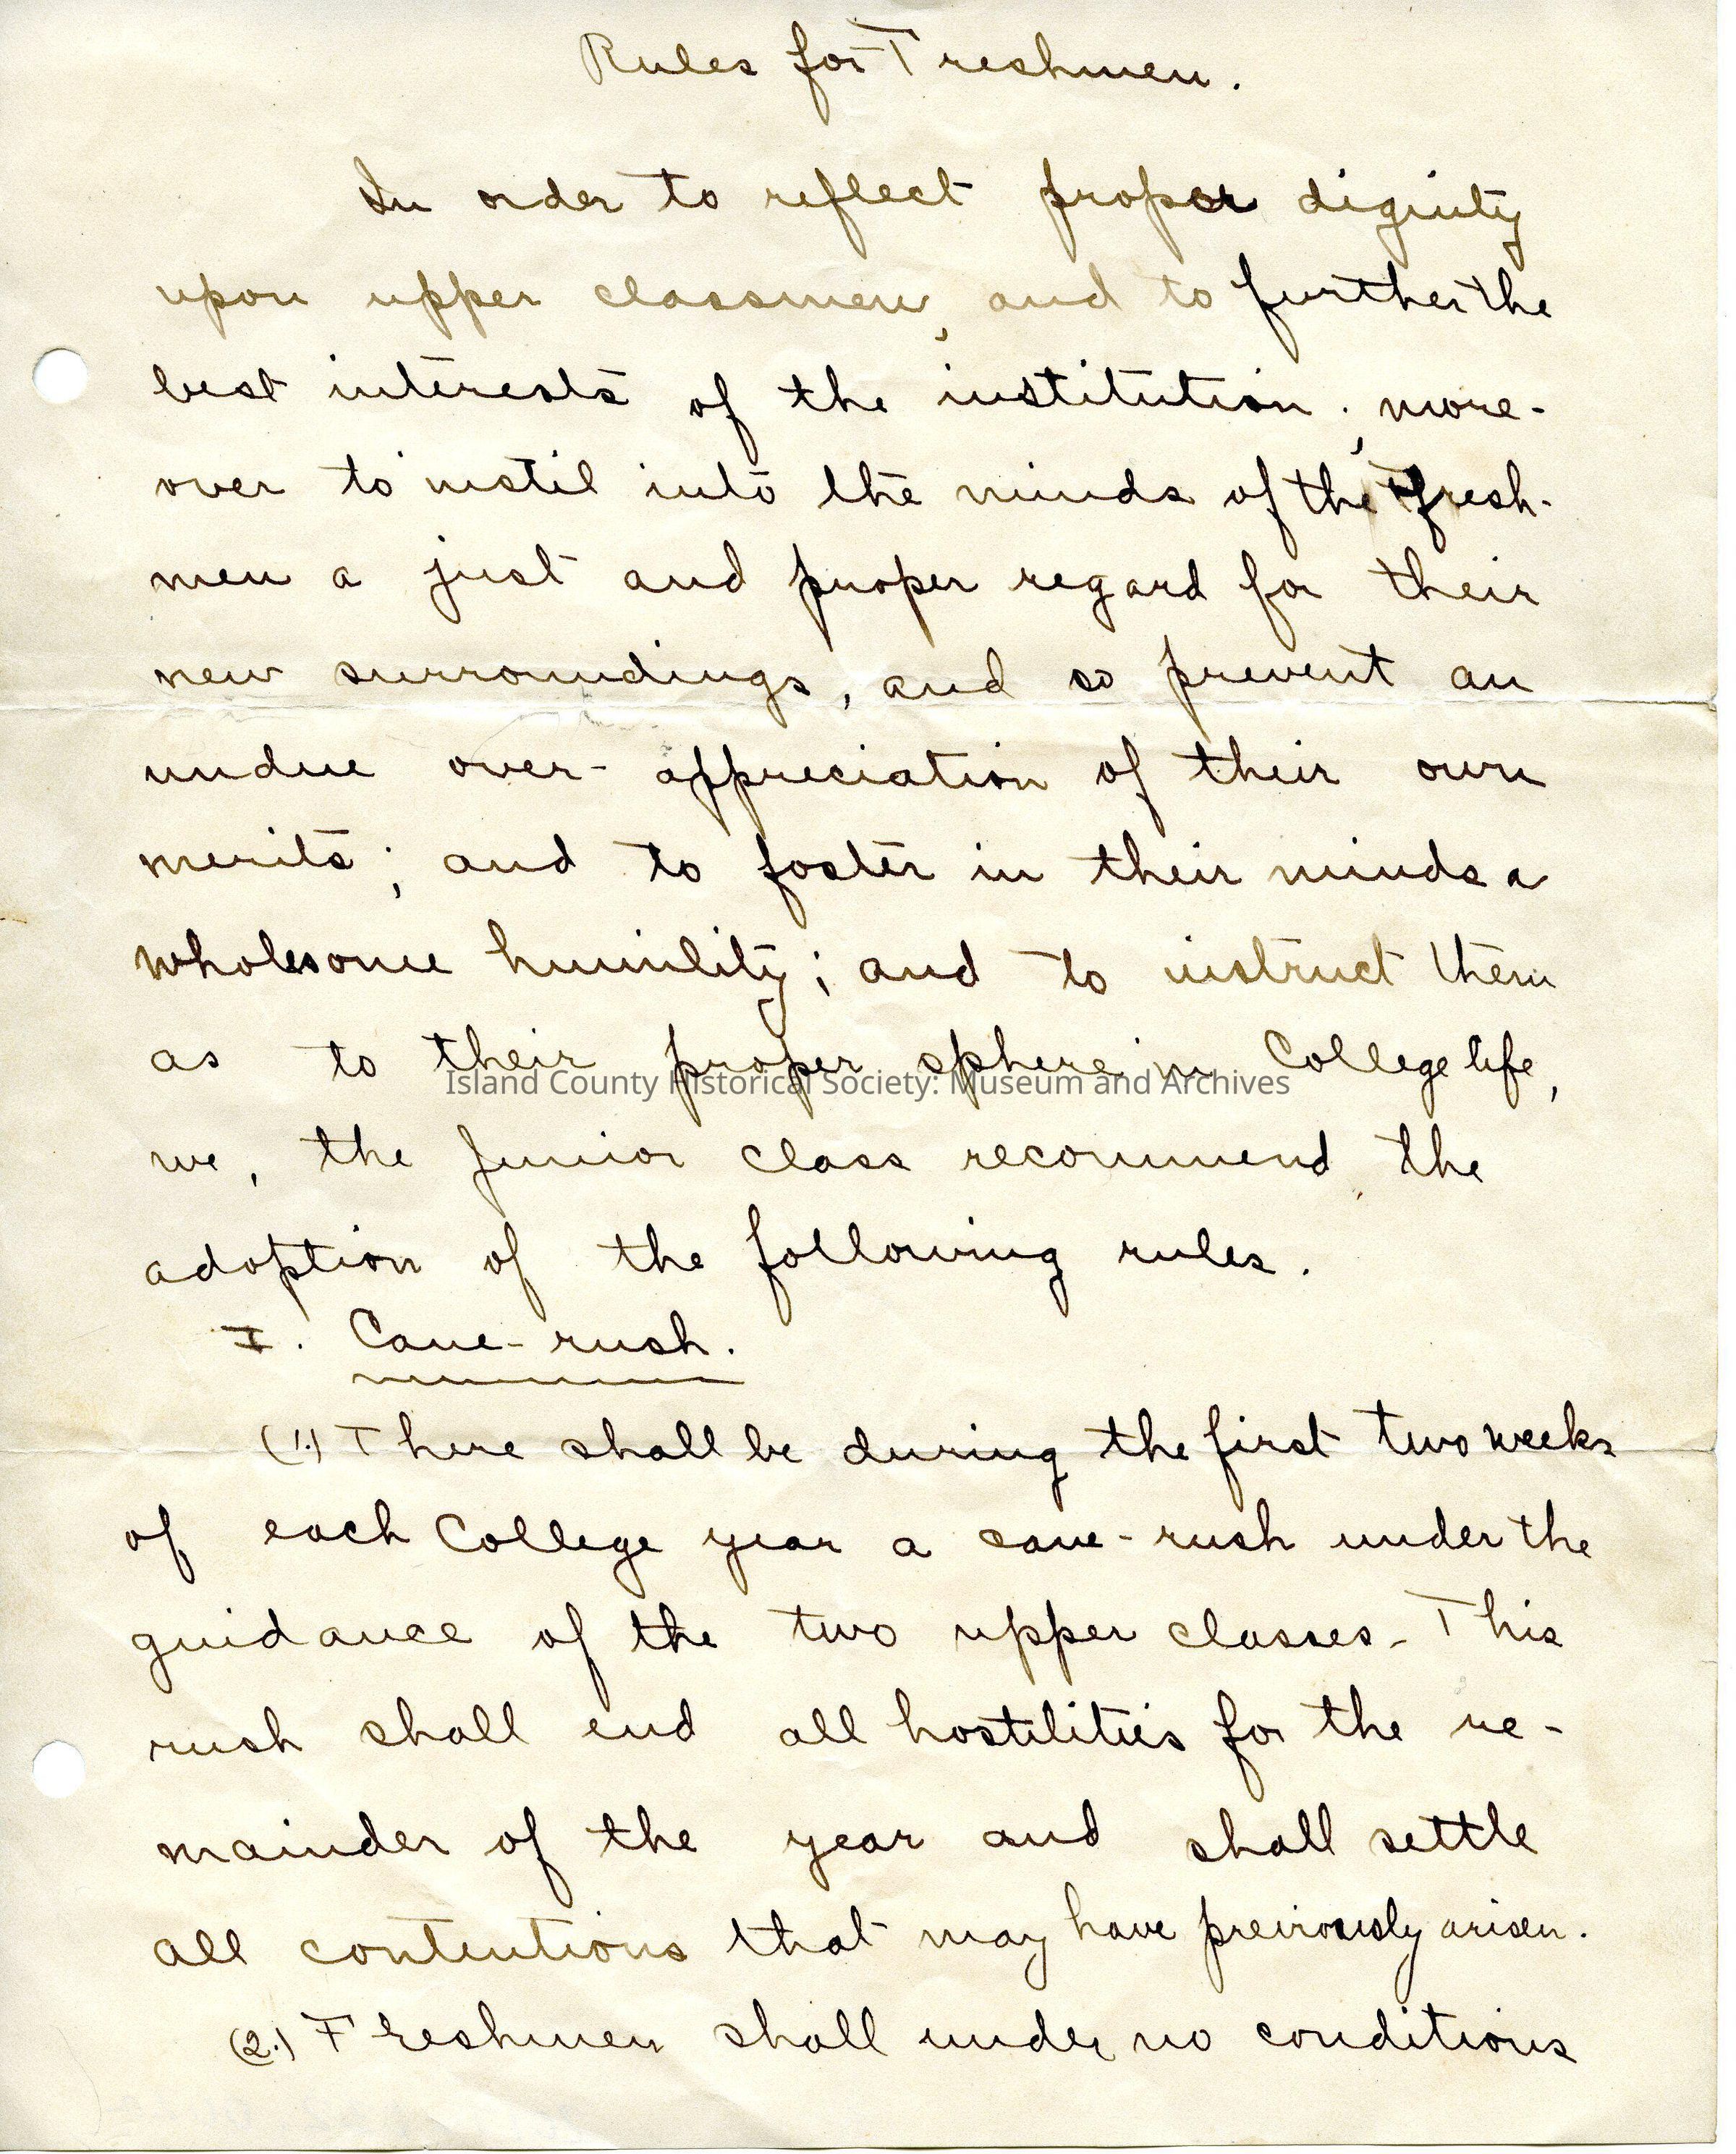 Rules for Freshmen.
In order to reflect proper diginity
upon upper classmen, and to further the
best interests of the institution; more-
over to instil into the minds of the Fresh-
men a just and proper regard for their
new surroundings, and so prevent an
undue over-appreciation of their own
merits; and to foster in their minds a
wholesome humility; and to instruct them
as to their proper sphere in College life,
Island County Historical Society: Museum and Archives
we, the Junior class recommend the
adoption of the following rules.
I. Cane-rush.
(1.) There shall be during the first two weeks
of each College year a cane-rush under the
guidance of the two upper classes. This
rush shall end all hostilities for the re-
mainder of the year and shall settle
all contentions that may have previously arisen.
(2.) Freshmen shall under no conditions